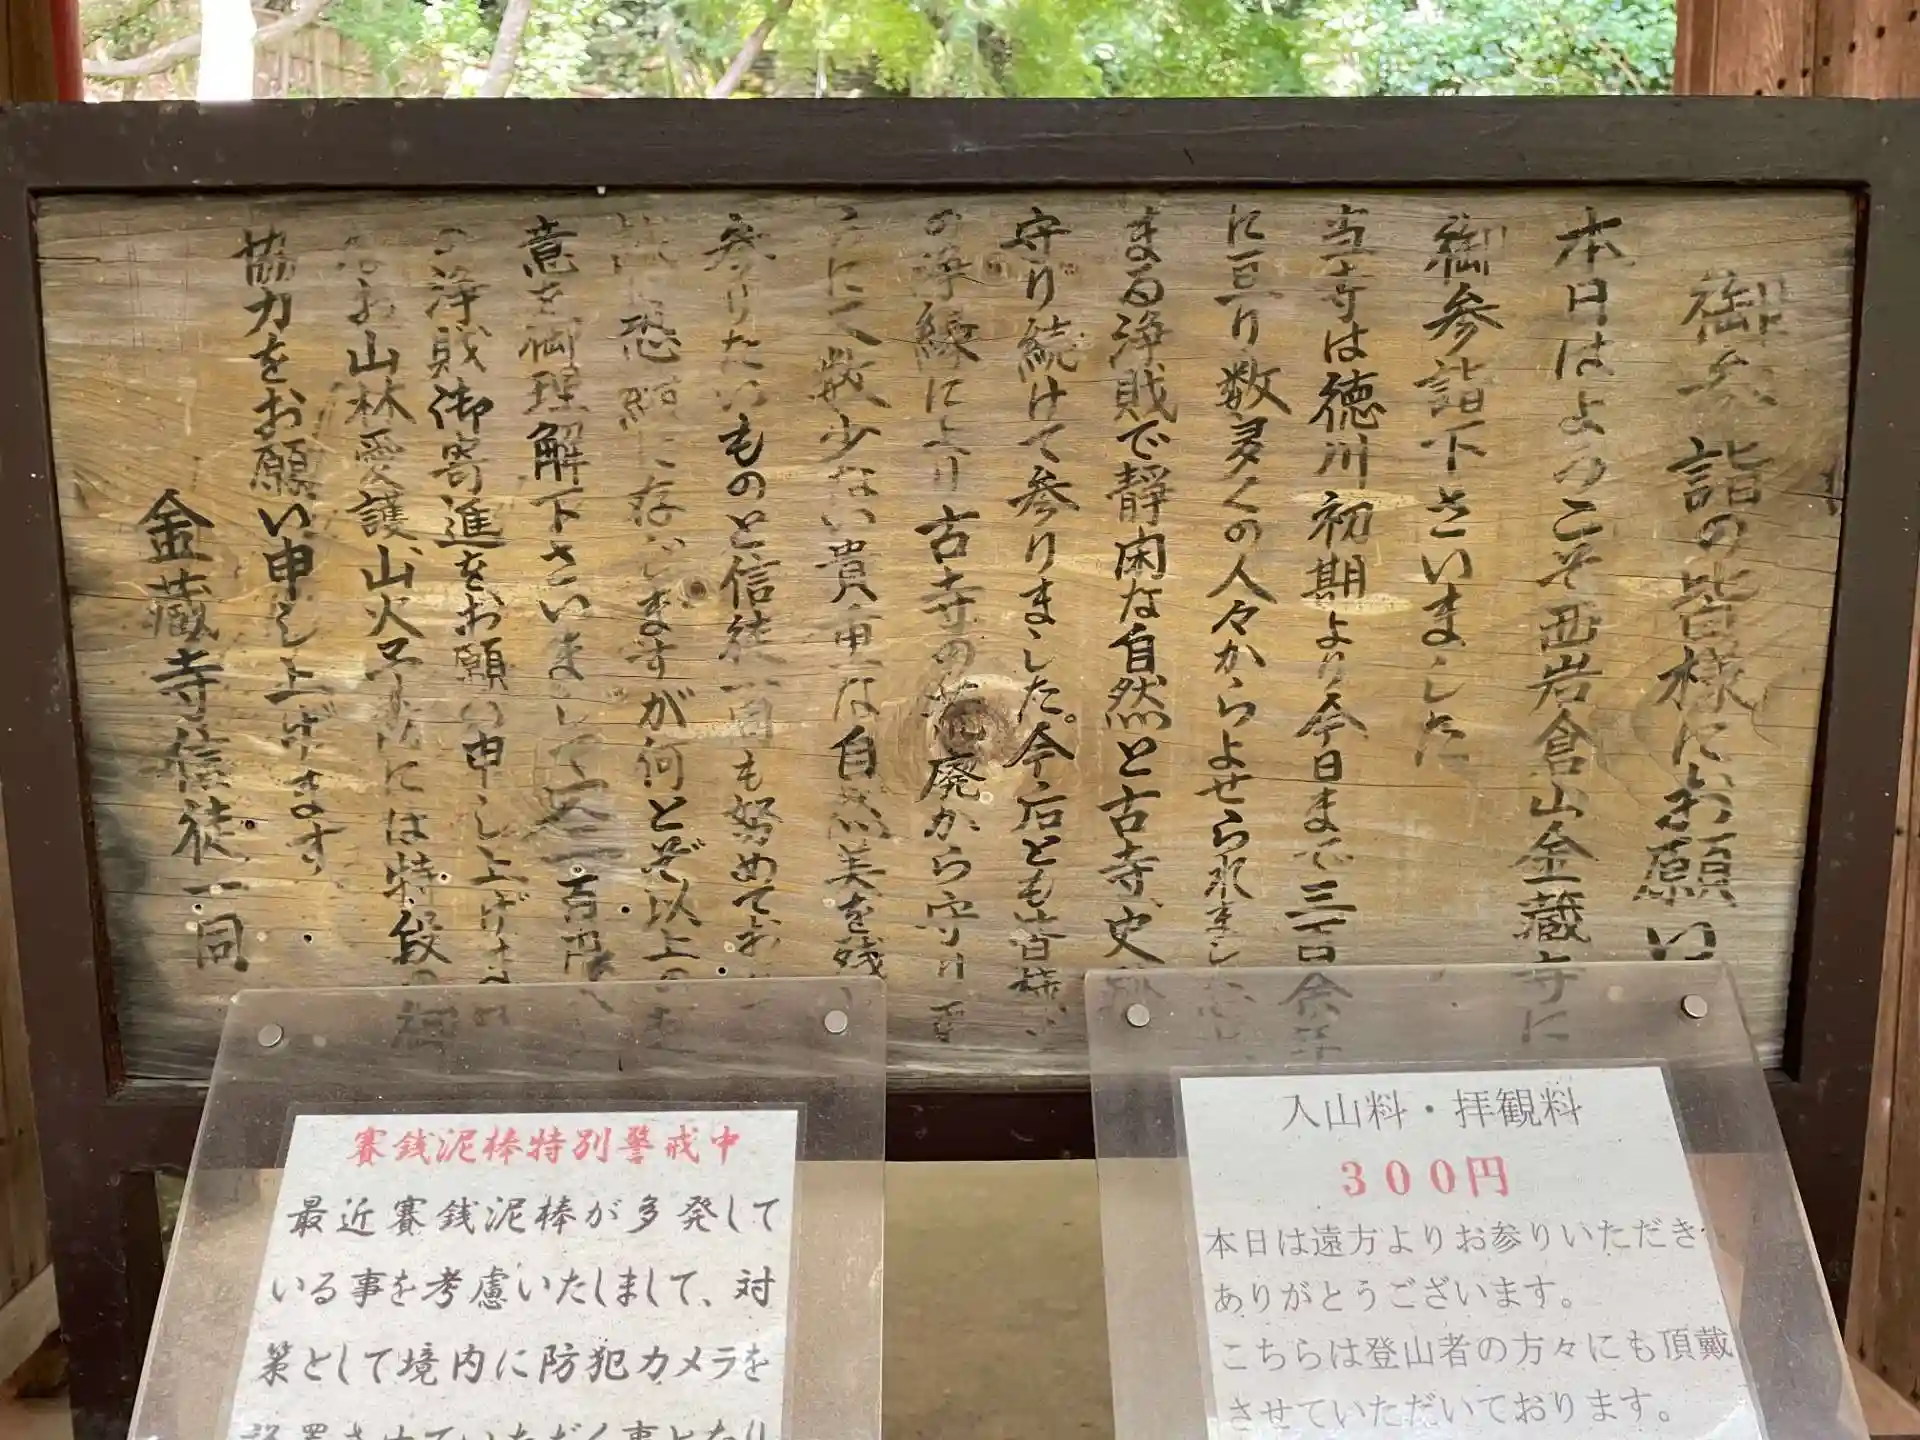 御参詣の皆様にお願い
本日はよのこそ西岩倉山金蔵寺に
御参詣下さいました
当寺は徳川初期より今日まで三百余年
に亘り数多くの人々からよせられまし
まる浄財で静閑な自然と古寺、史跡
守り続けて参りました。今后とも皆様
の浄縁に上り古寺の荒廃から守り
に数少ない貴重な自然美を残
参りたいものと信徒一同も努めてお
恐縮に存じますが何とぞ以上の
意を御理解下さいまして一百円
の浄財御寄進をお願い申し上げま
お山林愛護山火予防には特段の御
協力をお願い申し上げます
金蔵寺信徒一同
賽銭泥棒特別警戒中
最近賽銭泥棒が多発して
いる事を考慮いたしまして、対
策として境内に防犯カメラを
設置させていただく事となり
入山料・拝観料
300円
本日は遠方よりお参りいただき
ありがとうございます。
こちらは登山者の方々にも頂戴
させていただいております。